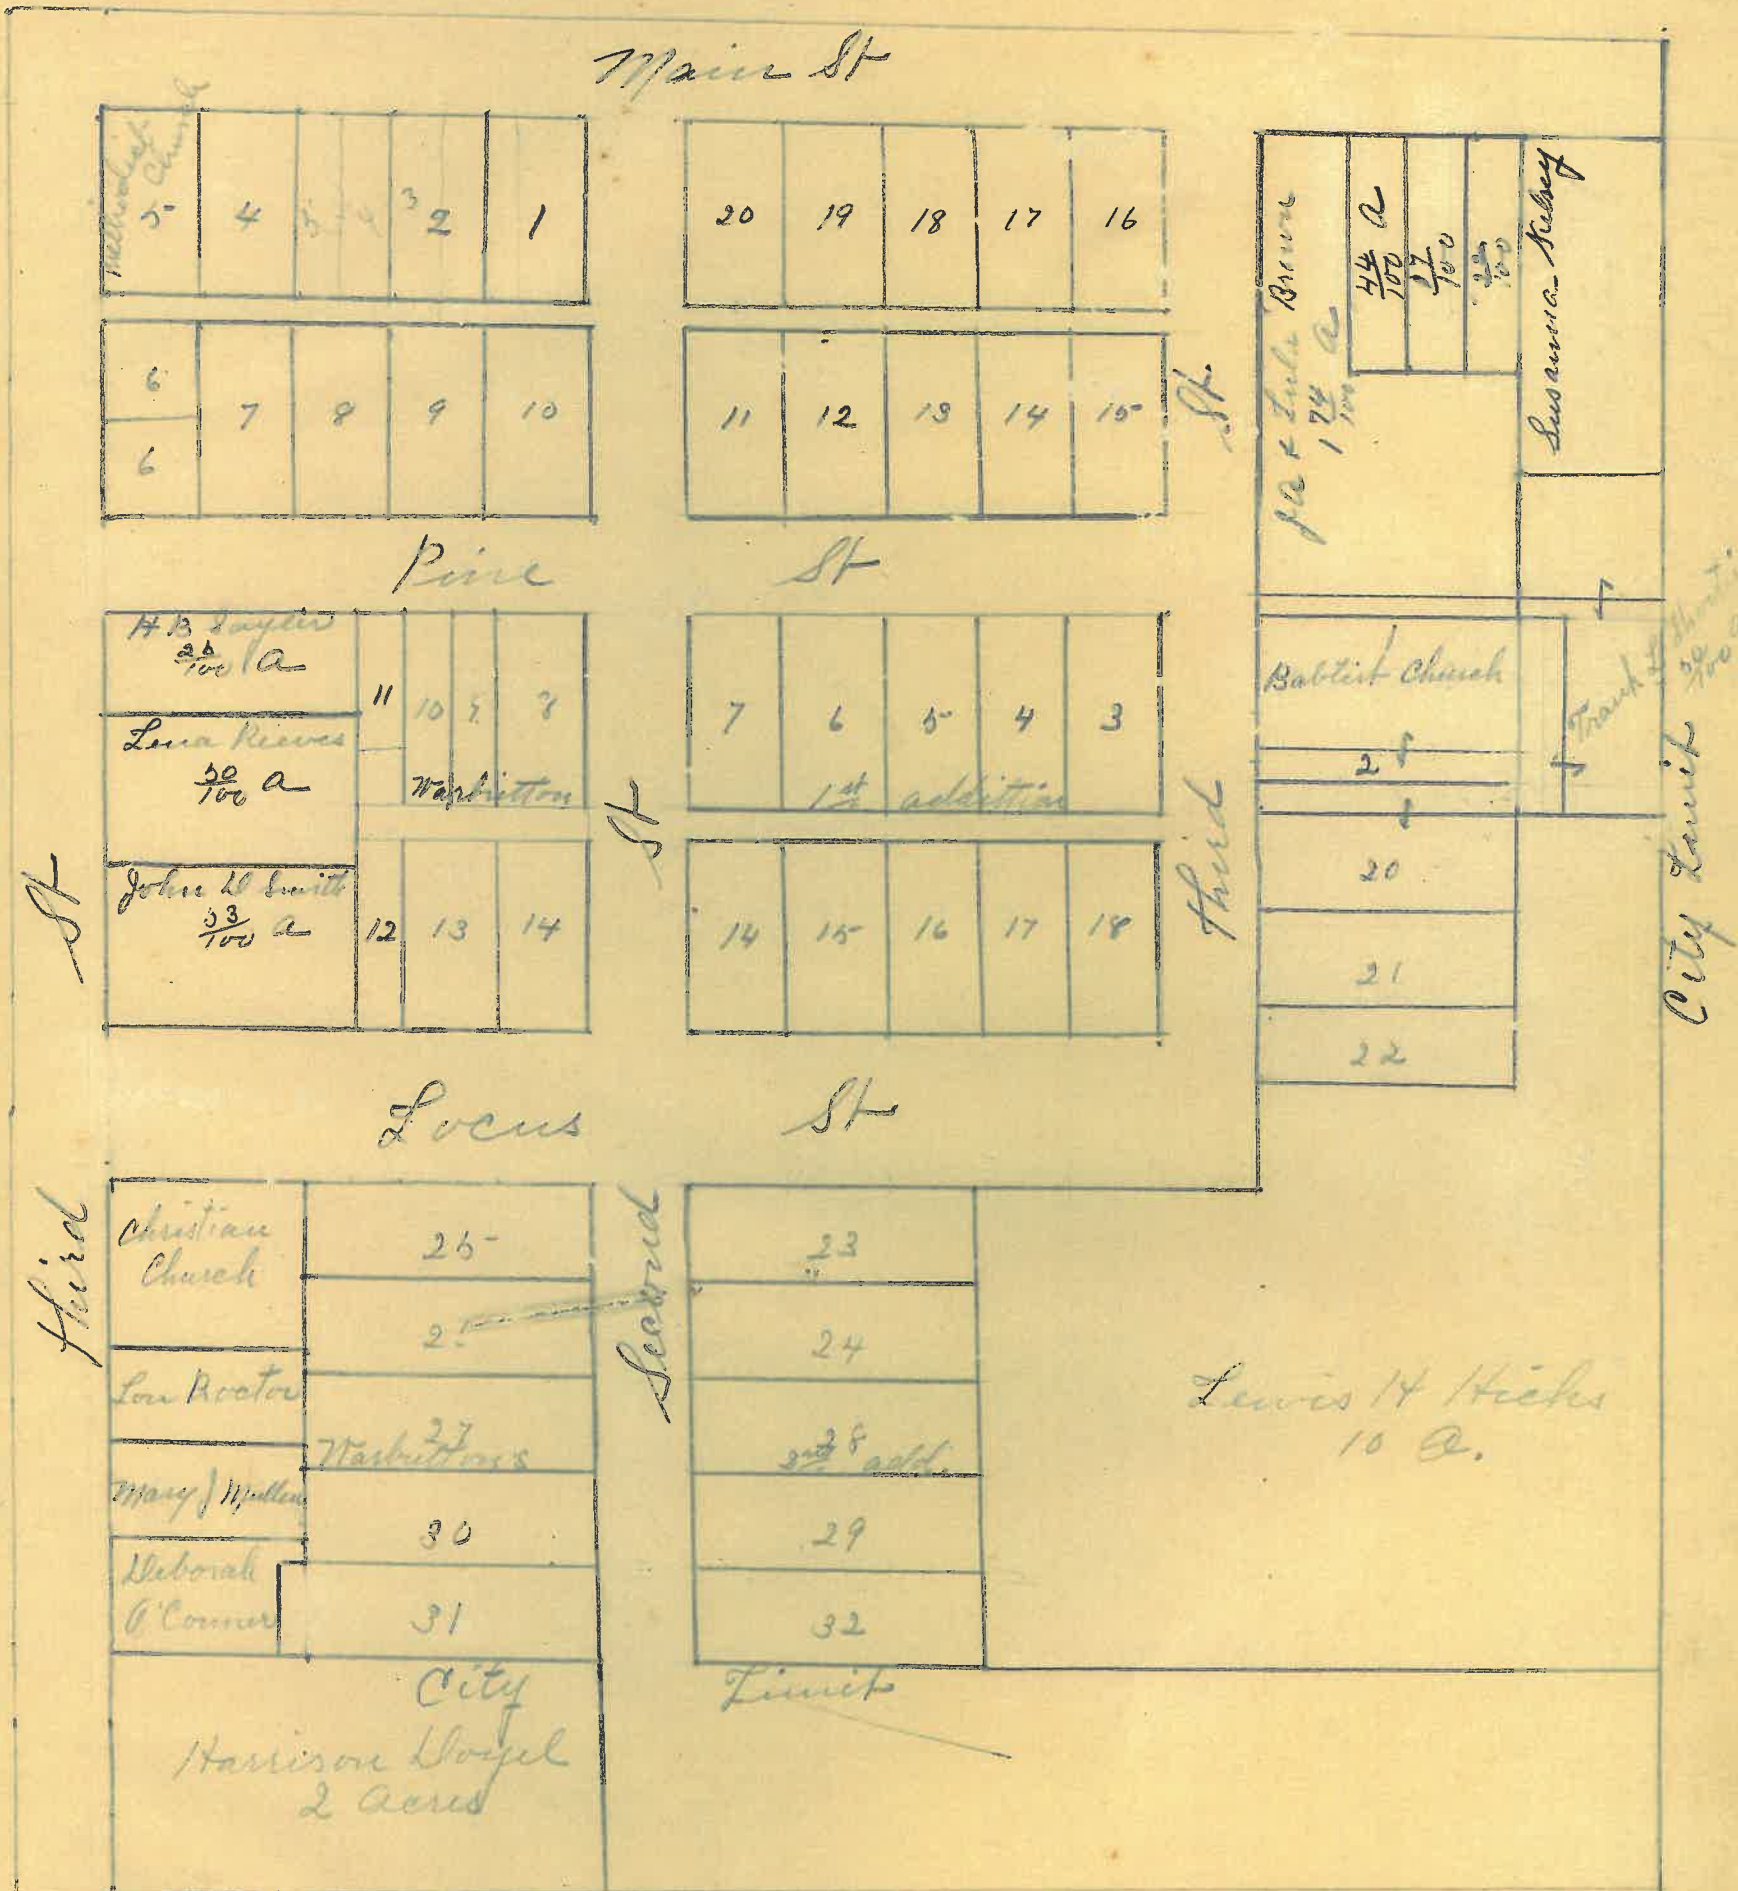 Main St
Methodist
Church
5
4
5
4
3
2
1
20
19
18
17
16
6
6
7
8
9
10
11
12
13
14
15
St.
Brown
1 74/100 a
44/100 a
27/100
22/100
Susanna Kelsey
Pine St
H B Sayler
a
Lena Reeves
30/100 a
John D Smith
33/100 a
11
10
9
8
Warbritton
7
6
5
4
3
1st addittion
12
13
14
14
15
16
17
18
St
St
Third
1
Babtist Church
2
20
21
22
30/100 a
City Limit
Locus St
Third
Second
Christian
Church
Lou Roctor
Mary J Mullen
Deborah
O'Conner
25
2
27
Warbrittons
30
31
23
24
28
2nd add.
29
32
Lewis H Hicks
10 a.
City Limit
Harrison Doyel
2 Acres